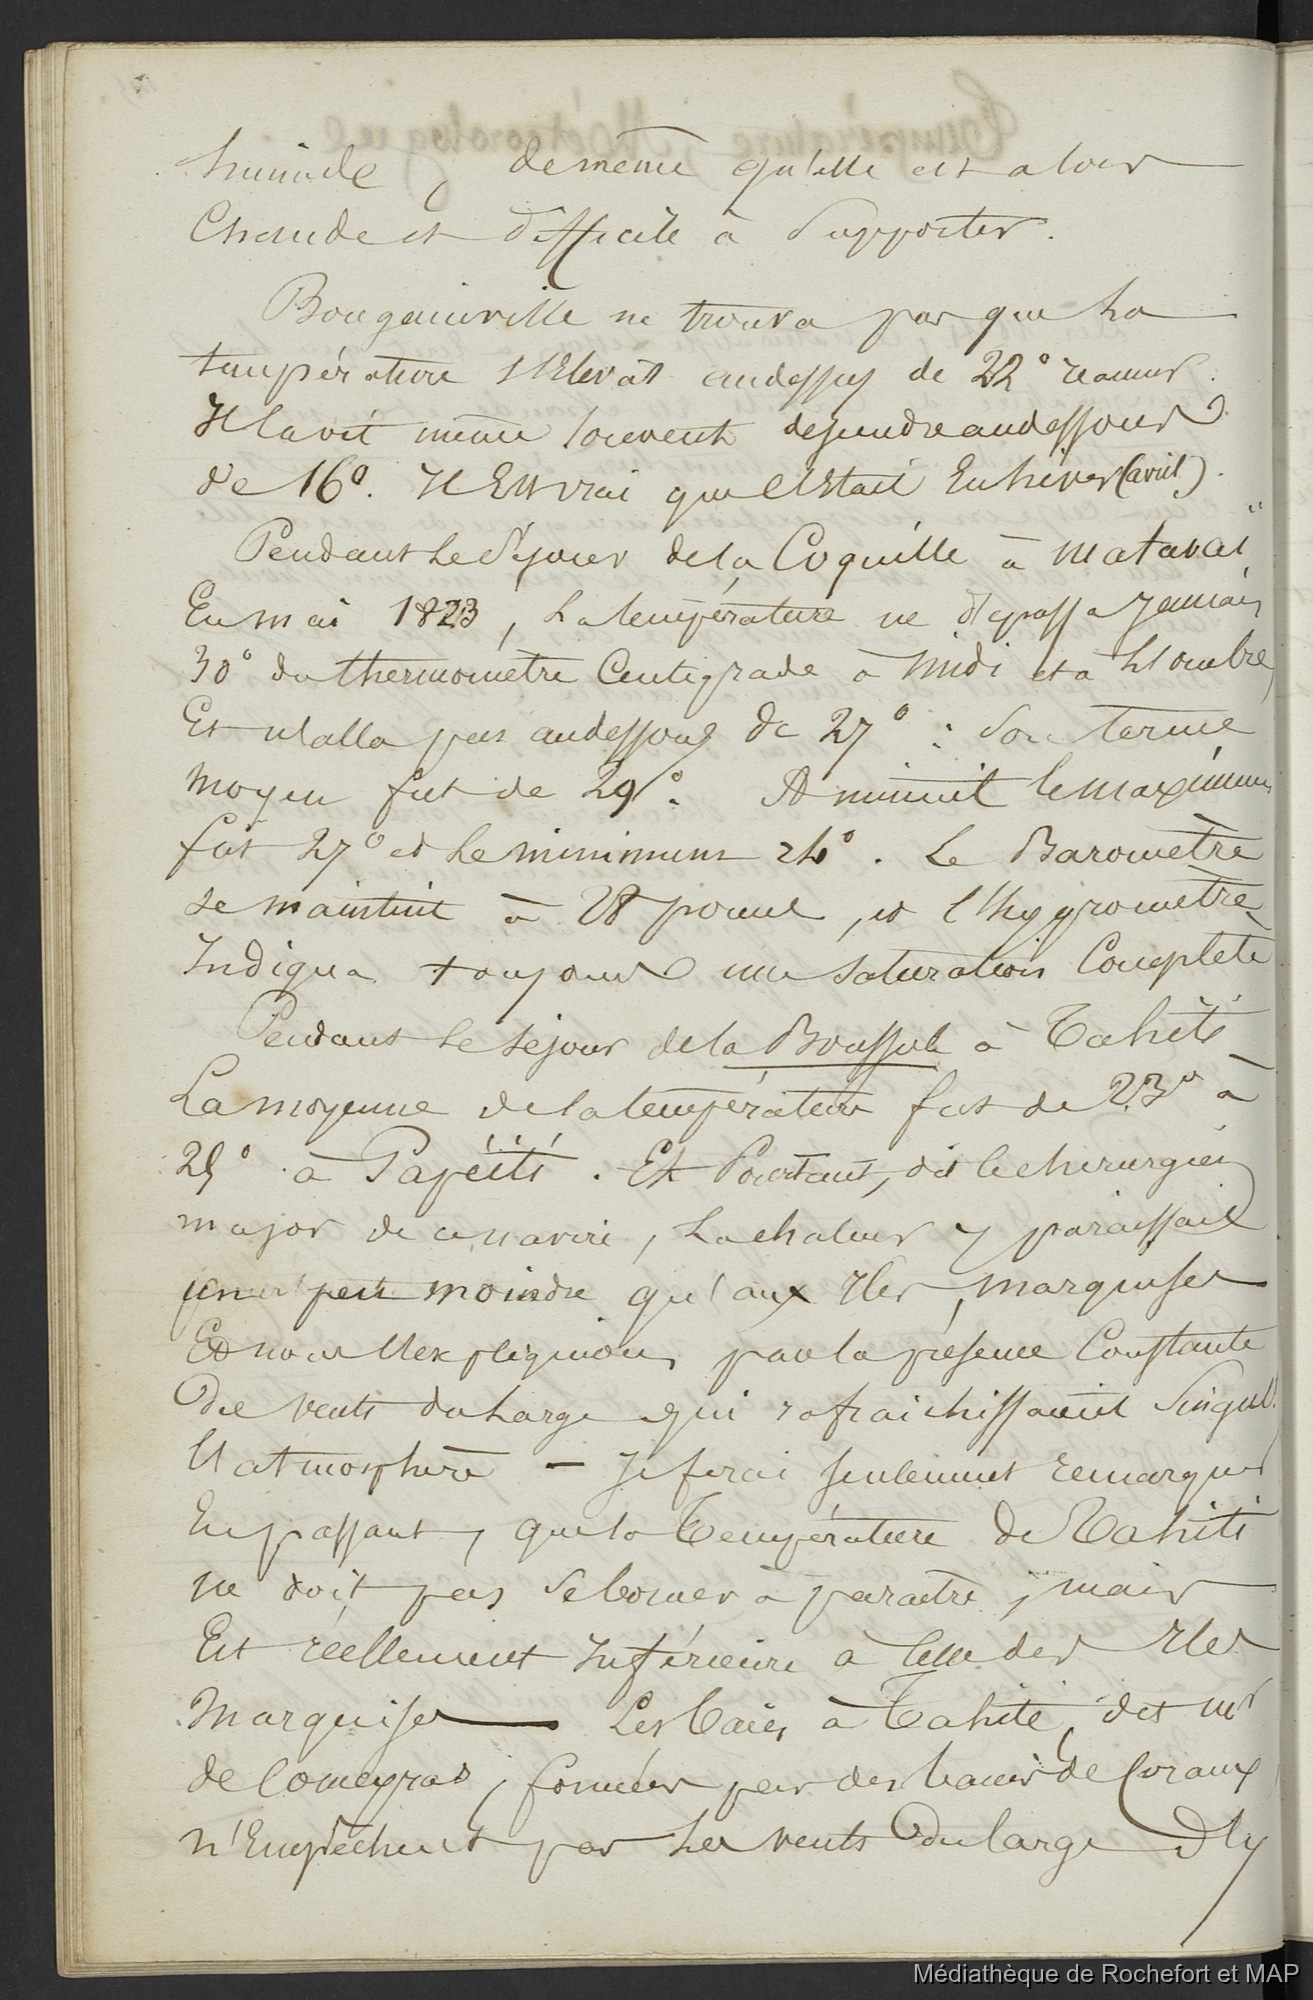 humide, de même qu'elle est alors
Chaude et difficile à Supporter.
Bougainville ne trouva pas que la
température s'Elevât audessus de 22° reaumur.
Il la vit même souvent descendre audessous
de 16°. Il Est vrai que c'Etait En hiver (avril).
Pendant le Séjour de la Coquille à mataval
En mai 1823, La température ne depassa jamais
30° du thermomètre Centigrade à midi et à L'ombre,
Et n'alla pas audessous de 27° : Son terme
moyen fut de 29°. A minuit le maximum
fut 27° et Le minimum 24°. Le Baromètre
se maintint à 28 pouces, et l'hygromètre
Indiqua toujours une saturation Complète
Pendant le séjour de la Boussole à Tahiti
La moyenne de la température fut de 23° à
25° à Papéïti. Et Pourtant, dit le chirurgien
major de ce navire, La chaleur y paraissait
peu moindre qu'aux Iles Marquises
Et nous l'Expliquions par la présence Constante
De vents du Large qui rafraichissaient Singul.
L'atmosphère — Je ferai seulement remarquer
En passant, que la Température De Tahiti
ne doit pas Se borner à paraitre, mais
Est réellement Inférieure à Celle des Iles
Marquises — Les baies à Tahiti, dit mr
de Comeyras, formées par des bancs de Coraux,
n'Empêchent pas Les vents Du large D'y
Médiathèque de Rochefort et MAP